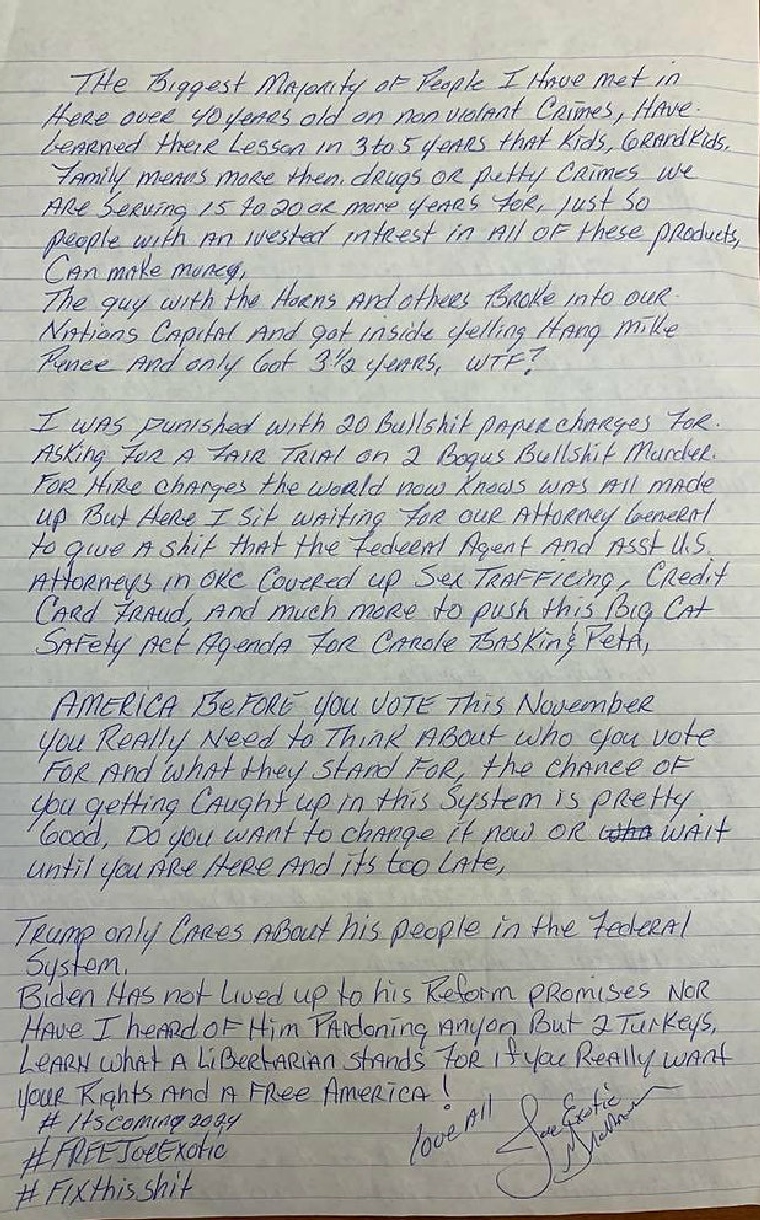 The Biggest Majority of People I Have met in
Here over 40 years old on non violant Crimes, Have
Learned their Lesson in 3 to 5 years that Kids, Grandkids,
Family means more then drugs or petty Crimes we
Are Serving 15 to 20 or more years for, Just So
people with an ivested intrest in All of these products,
Can make money,
The guy with the Horns And others Broke into our
Nations Capital And got inside yelling Hang Mike
Pence And only Got 3½ years, WTF?
I was punished with 20 Bullshit paper charges For
Asking For A Fair Trial on 2 Bogus Bullshit Murder
For Hire charges the world now knows was All made
up But Here I Sit waiting For our Attorney General
to give A shit that the Federal Agent And Asst U.S.
Attorneys in OKC Covered up Sex Trafficing, Credit
Card Fraud, And much more to push this Big Cat
Safety Act Agenda For Carole Baskin & Peta,
America Before you vote This November
you Really Need to Think About who you vote
For And what they Stand For, the chance of
you getting Caught up in this System is pretty
Good, Do you want to change it now or wait
until you Are Here And its too Late,
Trump only Cares About his people in the Federal
System.
Biden Has not Lived up to his Reform promises Nor
Have I heard of Him Pardoning anyon But 2 Turkeys,
Learn what A Libertarian Stands For if you Really want
your Rights And A Free America!
# Itscoming2024
Love All Joe Exotic
#FREEJoeExotic
# Fixthisshit